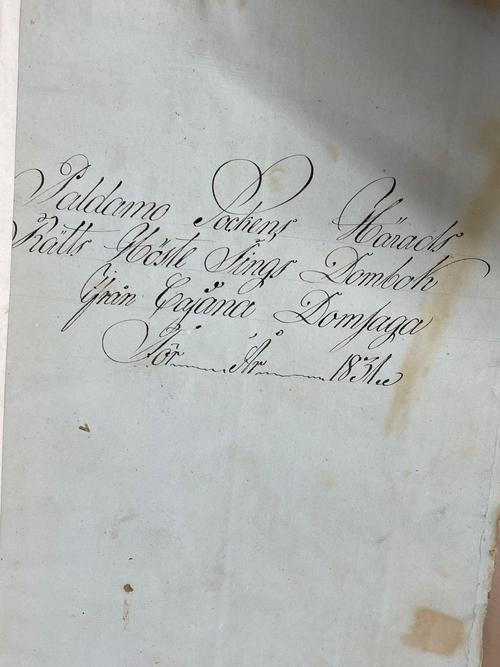 Paldamo Sockens Härads
Rätts Höste Tings Dombok
Ifrån Cajana Domsaga
För År 1831.